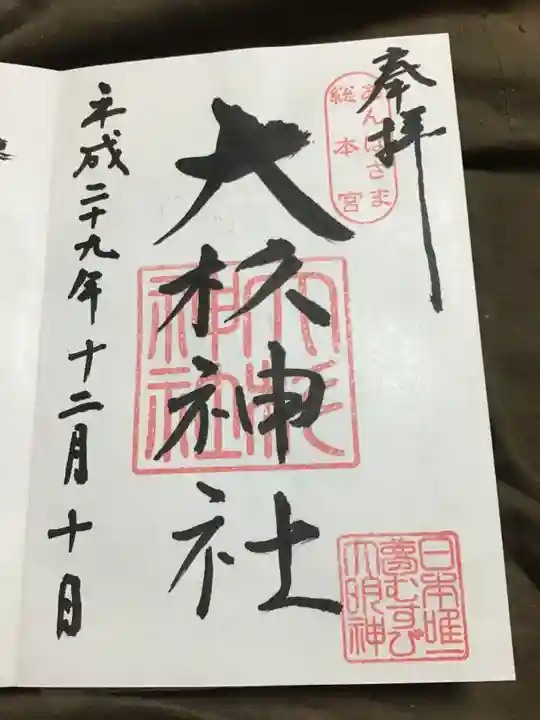 奉拝
あんばさま
総本宮
大杉神社
大杉
神社
日本唯一
夢むすび
大明神
平成二十九年十二月十日